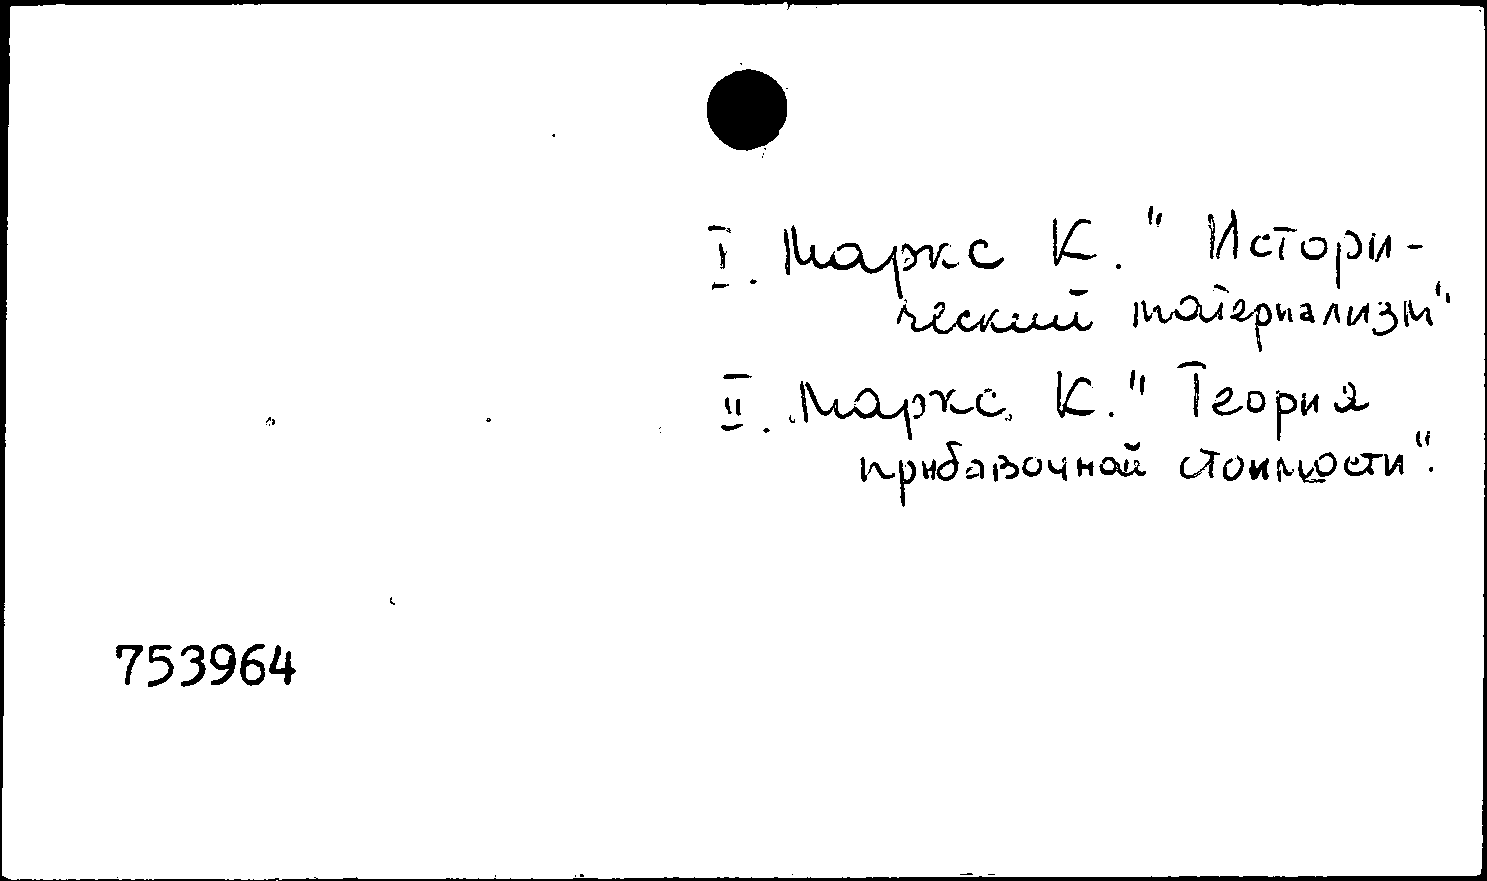 I. Маркс К. " Истори-
ческий материализм"
II. Маркс К. " Теория
прибавочной стоимости".
753964